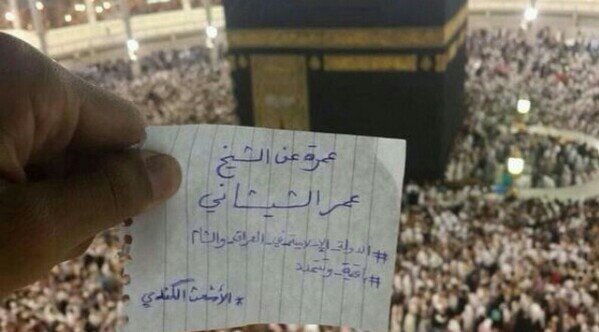 عمرة عن الشيخ
عمر الشيشاني
#الدولة_الإسلامية_في_العراق_والشام
#باقية_وتتمدد
*الأشعث الكندي